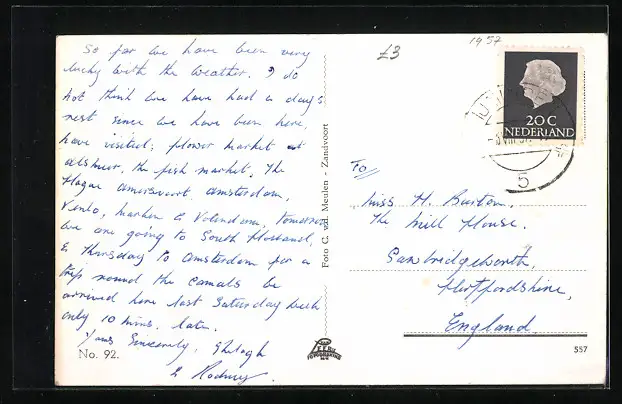 So far we have been very
lucky with the weather. I do
not think we have had a day's
rest since we have been here,
have visited; flower market at
alsmeer, the fish market, The
Hague Amersvoort Amsterdam,
Venlo, marken & Volendam, tomorrow
we are going to South Holland,
& Thursday to Amsterdam for a
trip round the canals we
arrived here last Saturday week
only 10 mins. late.
Yours Sincerely, Sheilagh
& Rodney.
No. 92.
Foto C. v.d. Meulen - Zandvoort
£3
1957
20 C
NEDERLAND
5
To
Miss H. Burton.
The Mill House.
Sawbridgeworth,
Hertfordshire,
England.
557